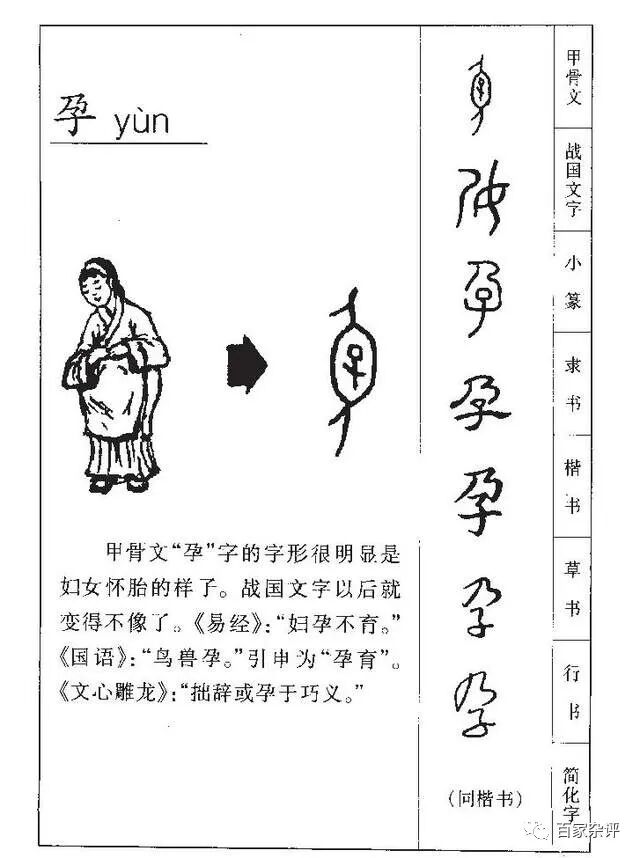 孕 yùn
甲骨文“孕”字的字形很明显是
妇女怀胎的样子。战国文字以后就
变得不像了。《易经》：“妇孕不育。”
《国语》：“鸟兽孕。”引申为“孕育”。
《文心雕龙》：“拙辞或孕于巧义。”
孕
孕
孕
孕
孕
（同楷书）
甲骨文
战国文字
小篆
隶书
楷书
草书
行书
简化字
百家杂评